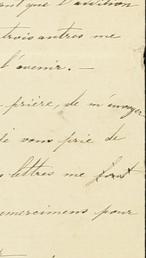 que l'audition
trois autres me
l'avenir. —
prière, de m'envoyer
je vous prie de
lettres me font
remercimens pour